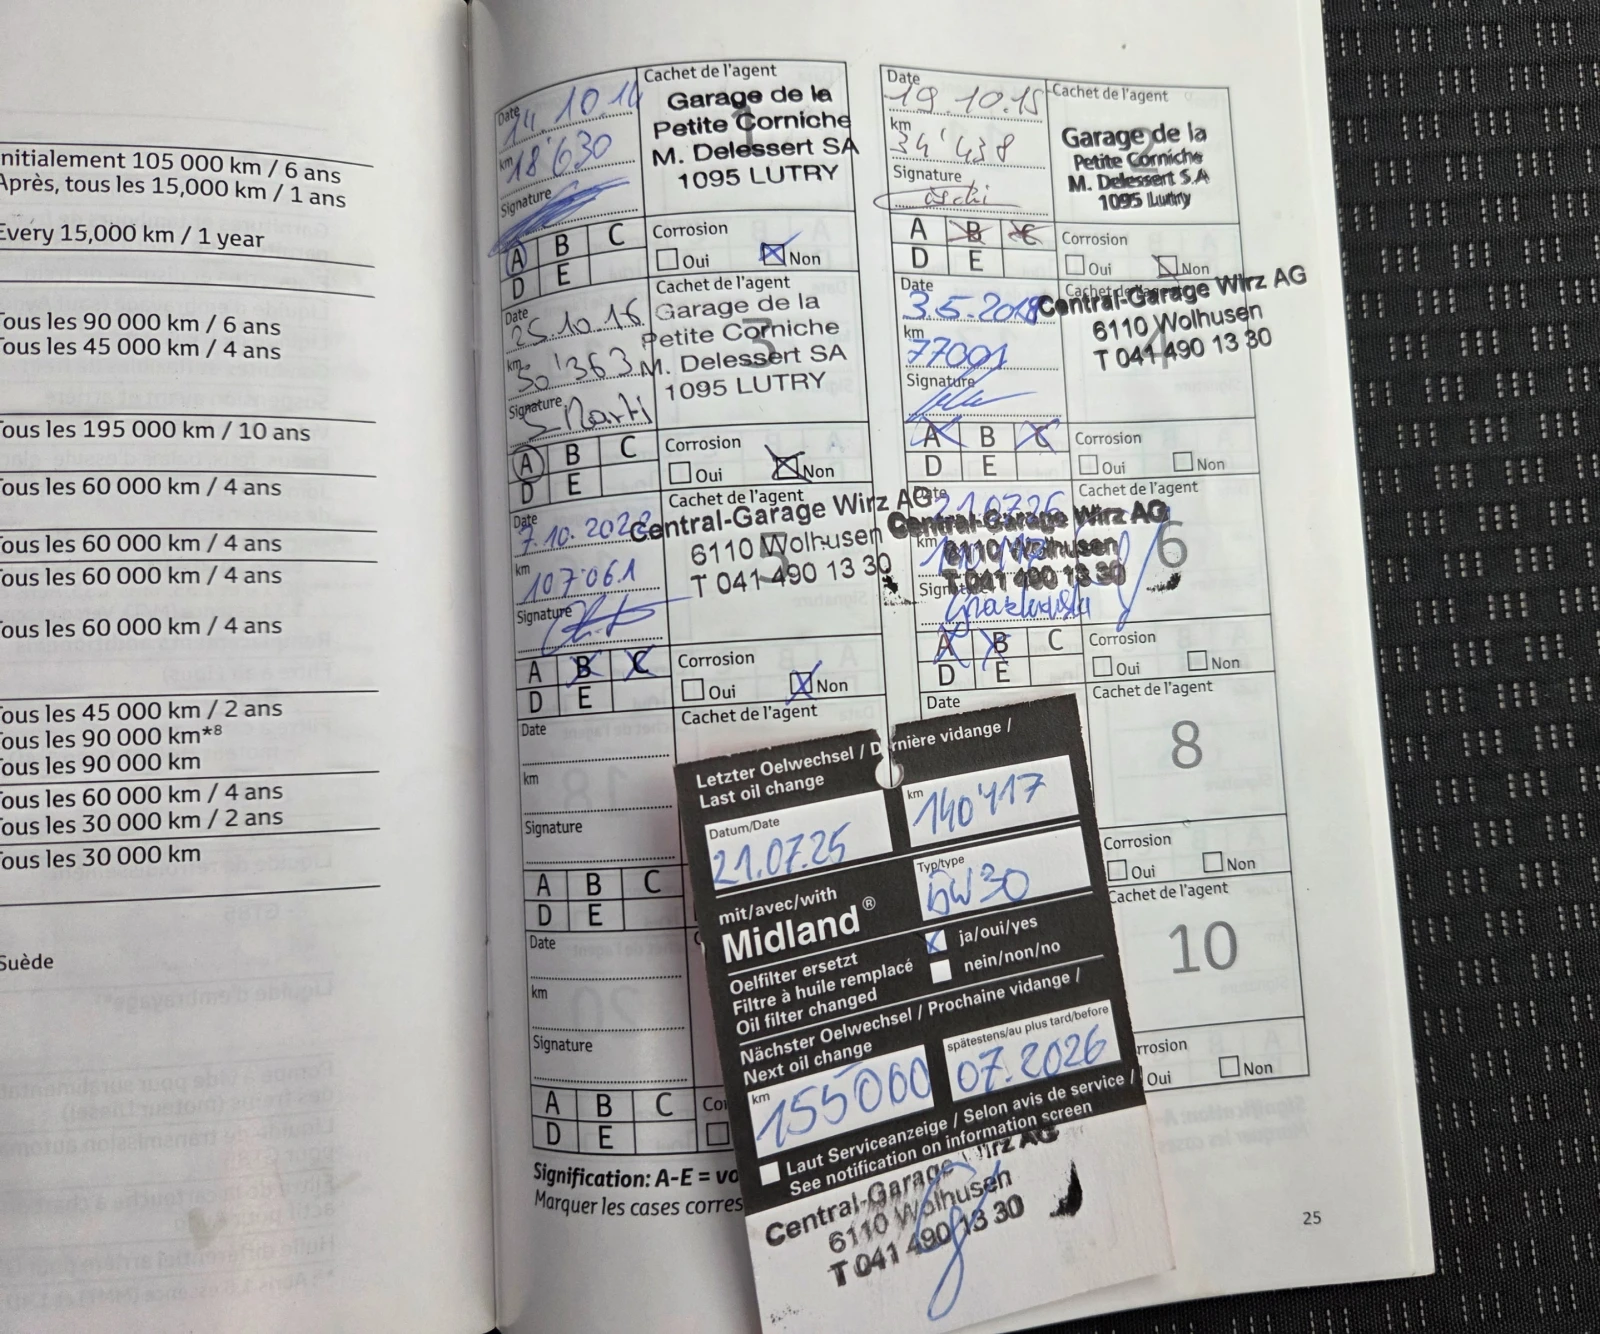 nitialement 105 000 km / 6 ans
Après, tous les 15,000 km / 1 ans
Every 15,000 km / 1 year
Tous les 90 000 km / 6 ans
Tous les 45 000 km / 4 ans
Tous les 195 000 km / 10 ans
Tous les 60 000 km / 4 ans
Tous les 60 000 km / 4 ans
Tous les 60 000 km / 4 ans
Tous les 60 000 km / 4 ans
Tous les 45 000 km / 2 ans
Tous les 90 000 km*8
Tous les 90 000 km
Tous les 60 000 km / 4 ans
Tous les 30 000 km / 2 ans
Tous les 30 000 km
Suède
Date 14.10.14
km 18'630
Signature
Cachet de l'agent
1
Garage de la
Petite Corniche
M. Delessert SA
1095 LUTRY
A B C
D E
Corrosion
Oui Non
Date 19.10.15
km 34'438
Signature
Cachet de l'agent
2
Garage de la
Petite Corniche
M. Delessert S.A
1095 Lutry
A B C
D E
Corrosion
Oui Non
Date 25.10.16
km 50'363
Signature
Cachet de l'agent
3
Garage de la
Petite Corniche
M. Delessert SA
1095 LUTRY
A B C
D E
Corrosion
Oui Non
Date 3.5.2018
km 77001
Signature
Cachet de l'agent
4
Central-Garage Wirz AG
6110 Wolhusen
T 041 490 13 30
A B C
D E
Corrosion
Oui Non
Date 7.10.202
km 107'061
Signature
Cachet de l'agent
Central-Garage Wirz AG
6110 Wolhusen
T 041 490 13 30
A B C
D E
Corrosion
Oui Non
Date
km
Signature
Cachet de l'agent
6
Central-Garage Wirz AG
6110 Wolhusen
T 041 490 13 30
A B C
D E
Corrosion
Oui Non
Date
km
Signature
Cachet de l'agent
A B C
D E
Date
Cachet de l'agent
8
Corrosion
Oui Non
Date
km
Signature
A B C
D E
Cachet de l'agent
10
rrosion
Oui Non
Letzter Oelwechsel / Dernière vidange /
Last oil change
Datum/Date
21.07.25
km
140'417
mit/avec/with
Midland®
Typ/type
5W30
Oelfilter ersetzt
Filtre à huile remplacé
Oil filter changed
ja/oui/yes
nein/non/no
Nächster Oelwechsel / Prochaine vidange /
Next oil change
km
155000
spätestens/au plus tard/before
07.2026
Laut Serviceanzeige / Selon avis de service /
See notification on information screen
Central-Garage Wirz AG
6110 Wolhusen
T 041 490 13 30
Signification: A-E = vo
Marquer les cases corres
25